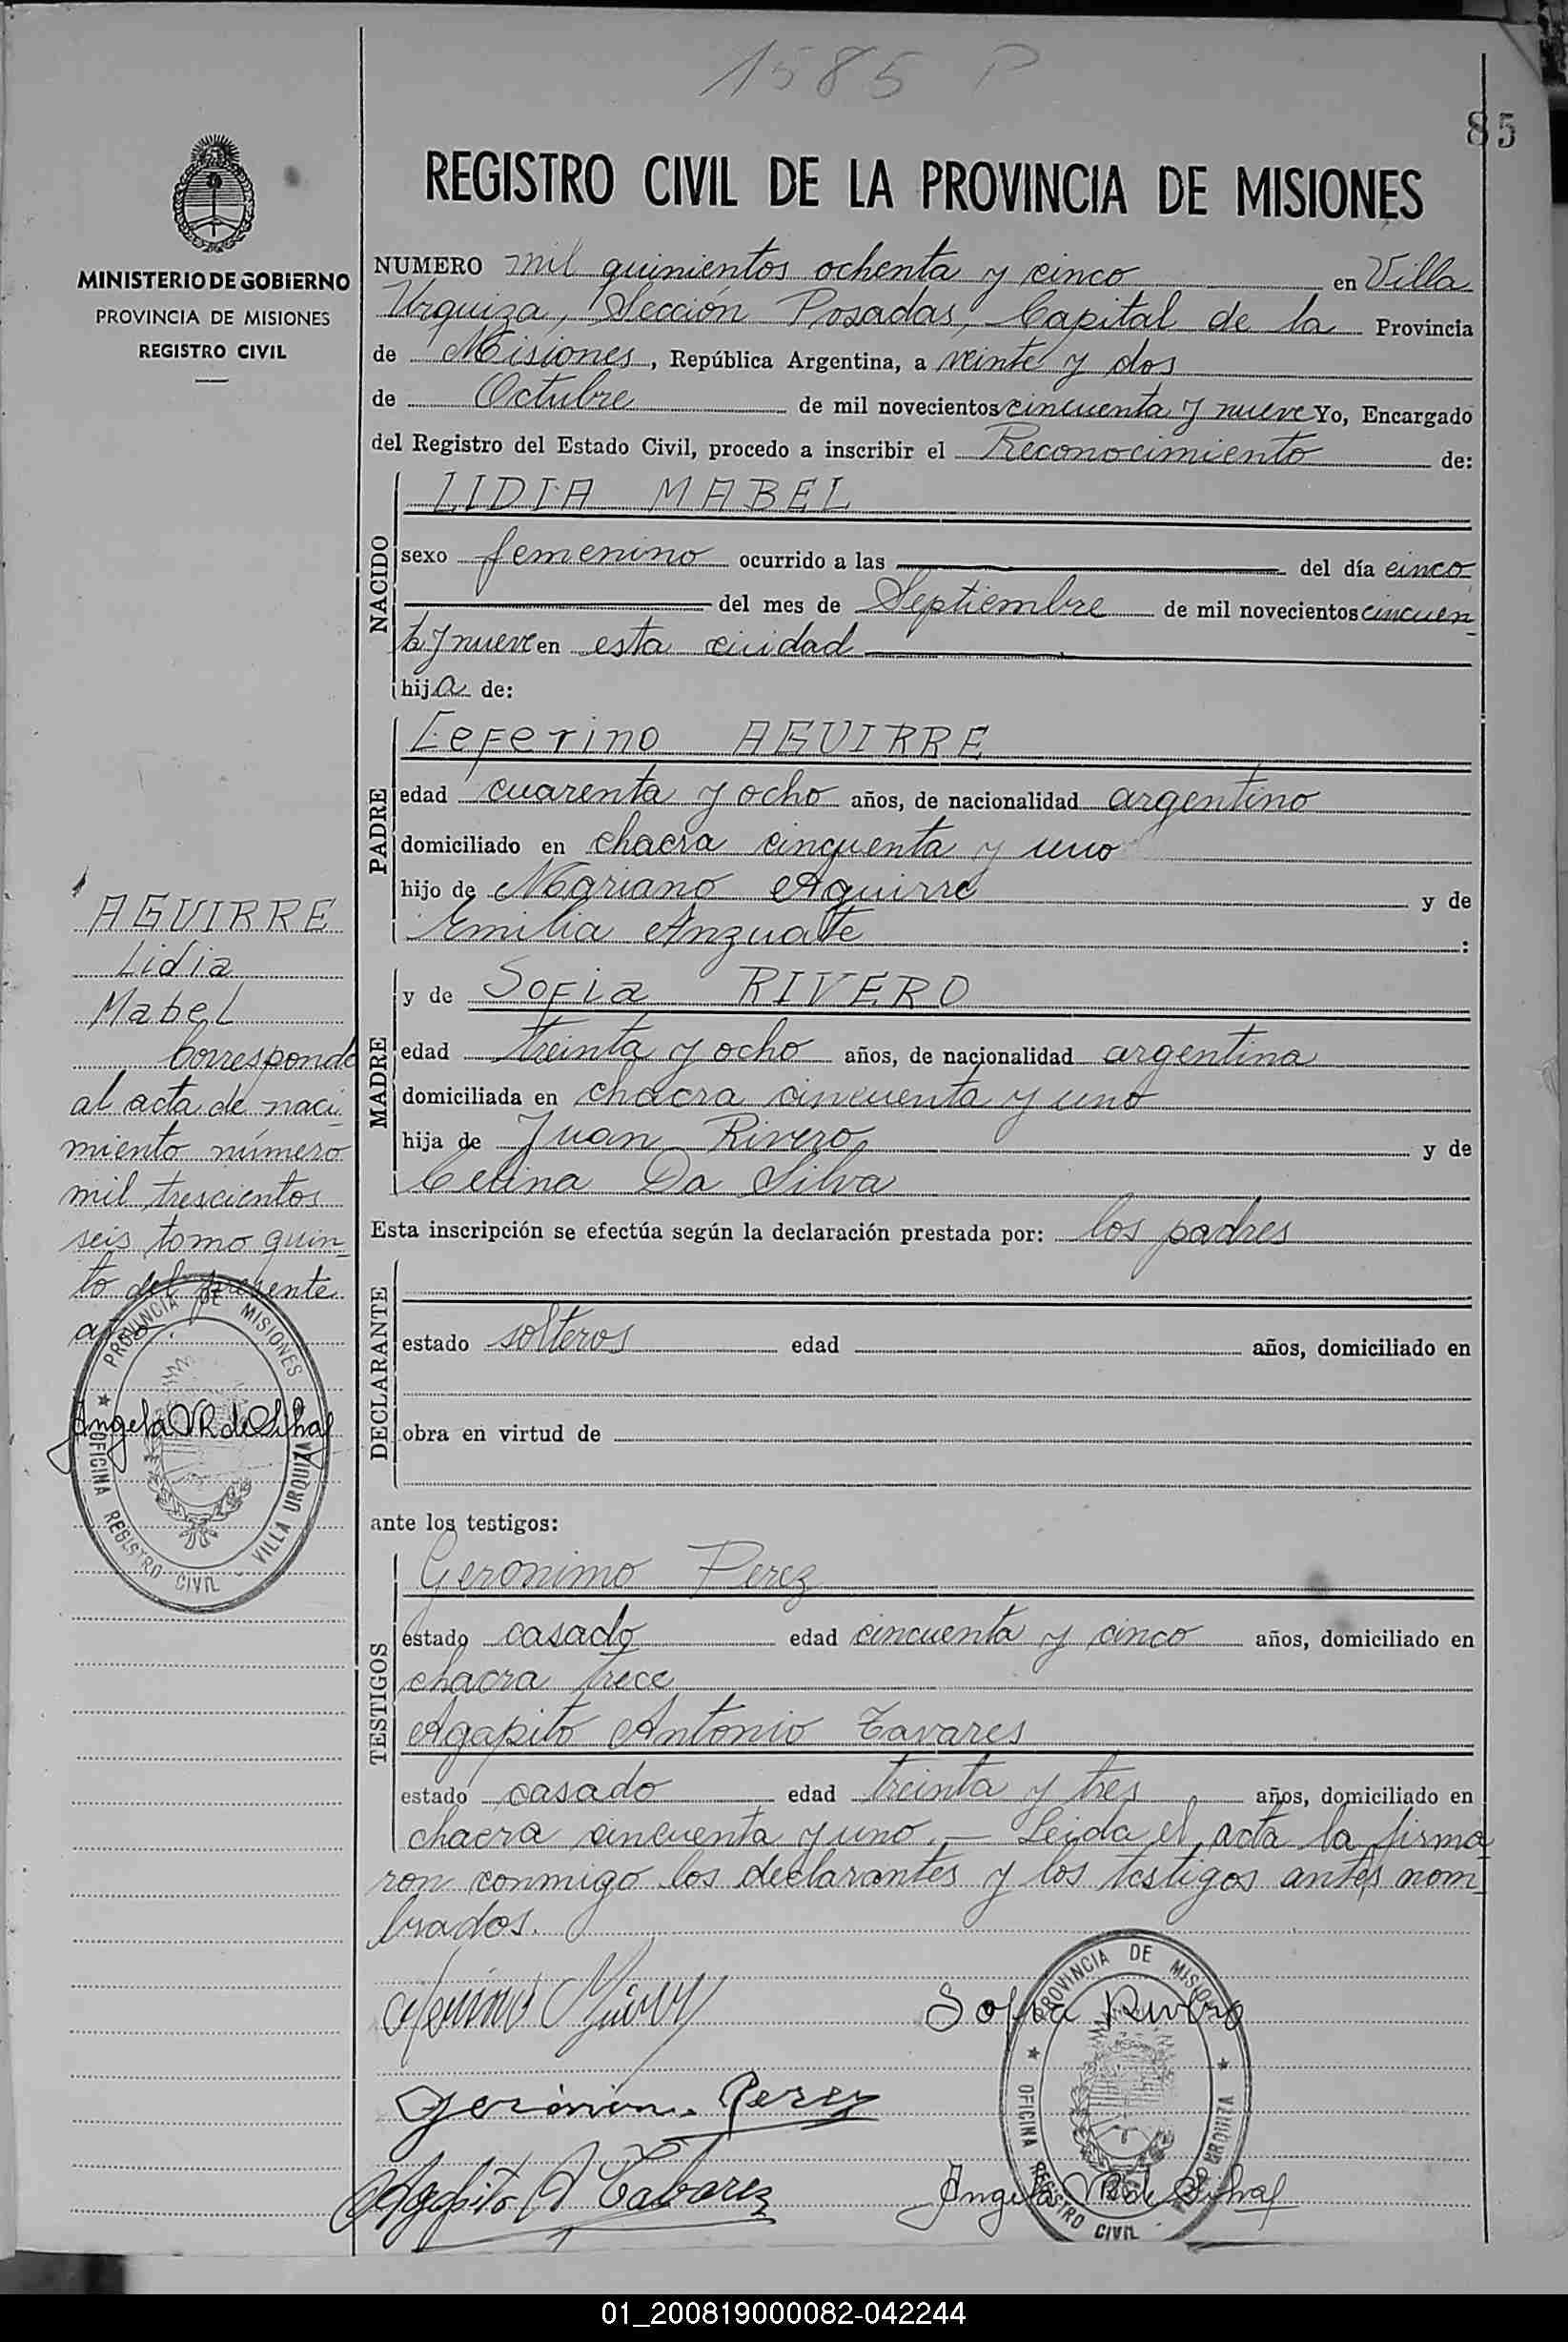 1585 P
85
REGISTRO CIVIL DE LA PROVINCIA DE MISIONES
MINISTERIO DE GOBIERNO
PROVINCIA DE MISIONES
REGISTRO CIVIL
NUMERO mil quinientos ochenta y cinco en Villa
Urquiza, Sección Posadas, Capital de la Provincia
de Misiones, República Argentina, a veinte y dos
de Octubre de mil novecientos cincuenta y nueve Yo, Encargado
del Registro del Estado Civil, procedo a inscribir el Reconocimiento de:
NACIDO
LIDIA MABEL
sexo femenino ocurrido a las del día cinco
del mes de Septiembre de mil novecientos cincuen
ta y nueve en esta ciudad
hija de:
PADRE
Ceferino AGUIRRE
edad cuarenta y ocho años, de nacionalidad argentino
domiciliado en chacra cinquenta y uno
hijo de Mariano Aguirre y de
Emilia Anzuate :
MADRE
y de Sofia RIVERO
edad treinta y ocho años, de nacionalidad argentina
domiciliada en chacra cincuenta y uno
hija de Juan Rivero y de
Celina Da Silva
Esta inscripción se efectúa según la declaración prestada por: los padres
DECLARANTE
estado solteros edad años, domiciliado en
obra en virtud de
ante los testigos:
TESTIGOS
Geronimo Perez
estado casado edad cincuenta y cinco años, domiciliado en
chacra trece
Agapito Antonio Tavares
estado casado edad treinta y tres años, domiciliado en
chacra cincuenta y uno.- Leida el acta la firma
ron conmigo los declarantes y los testigos antes nom
brados.
AGUIRRE
Lidia
Mabel
Corresponde
al acta de naci
miento número
mil trescientos
seis tomo quin
to del presente
año.
PROVINCIA DE MISIONES
OFICINA REGISTRO CIVIL - VILLA URQUIZA
Sofia Rivero
Geronimo Perez
Agapito A Tabarez
PROVINCIA DE MISIONES
OFICINA REGISTRO CIVIL - VILLA URQUIZA
01_200819000082-042244